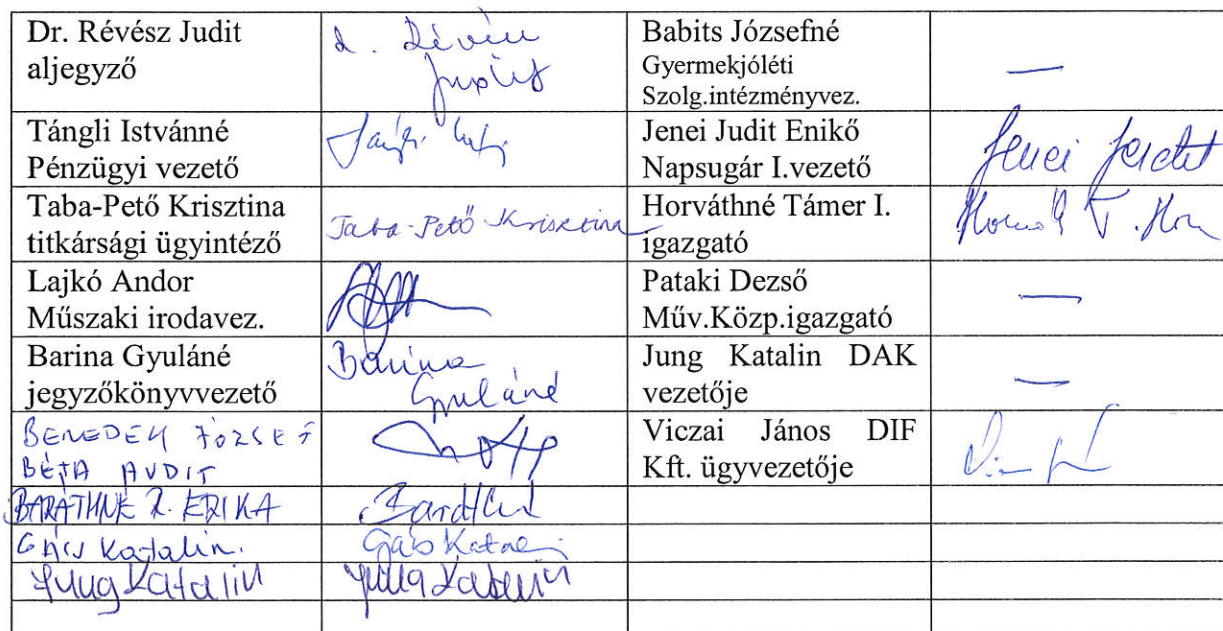 Dr. Révész Judit
aljegyző
d. Révész
Judit
Babits Józsefné
Gyermekjóléti
Szolg.intézményvez.
—
Tángli Istvánné
Pénzügyi vezető
Jenei Judit Enikő
Napsugár I.vezető
Jenei Judit
Taba-Pető Krisztina
titkársági ügyintéző
Taba-Pető Krisztina
Horváthné Támer I.
igazgató
Lajkó Andor
Műszaki irodavez.
Pataki Dezső
Műv.Közp.igazgató
—
Barina Gyuláné
jegyzőkönyvvezető
Barina
Gyuláné
Jung Katalin DAK
vezetője
—
BENEDEK JÓZSEF
BÉTA AUDIT
Viczai János DIF
Kft. ügyvezetője
BARÁTHNÉ R. ERIKA
Gács Katalin.
Gács Katalin
Jung Katalin
Jung Katalin